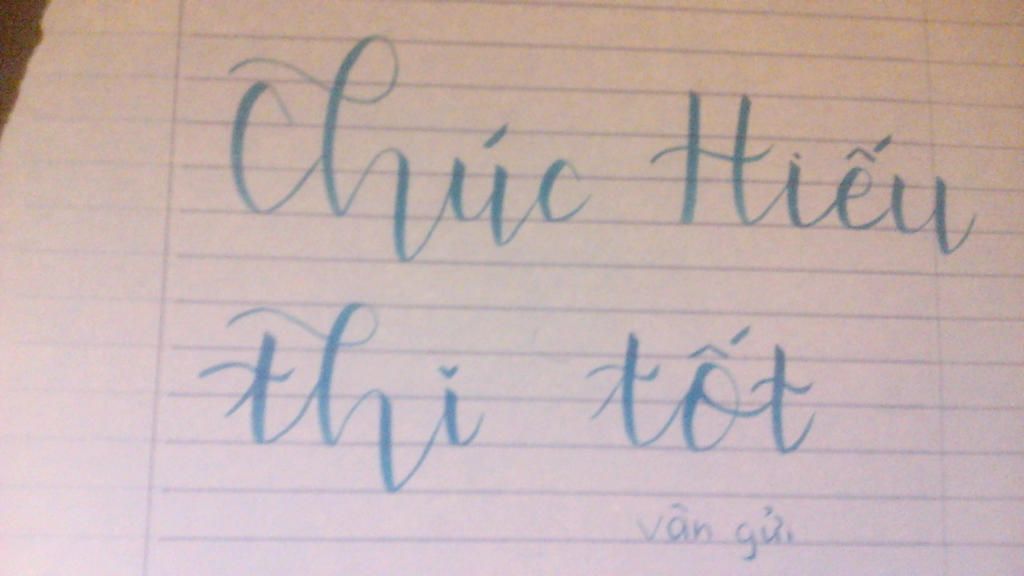 Chúc Hiếu
thi tốt
vân gửi